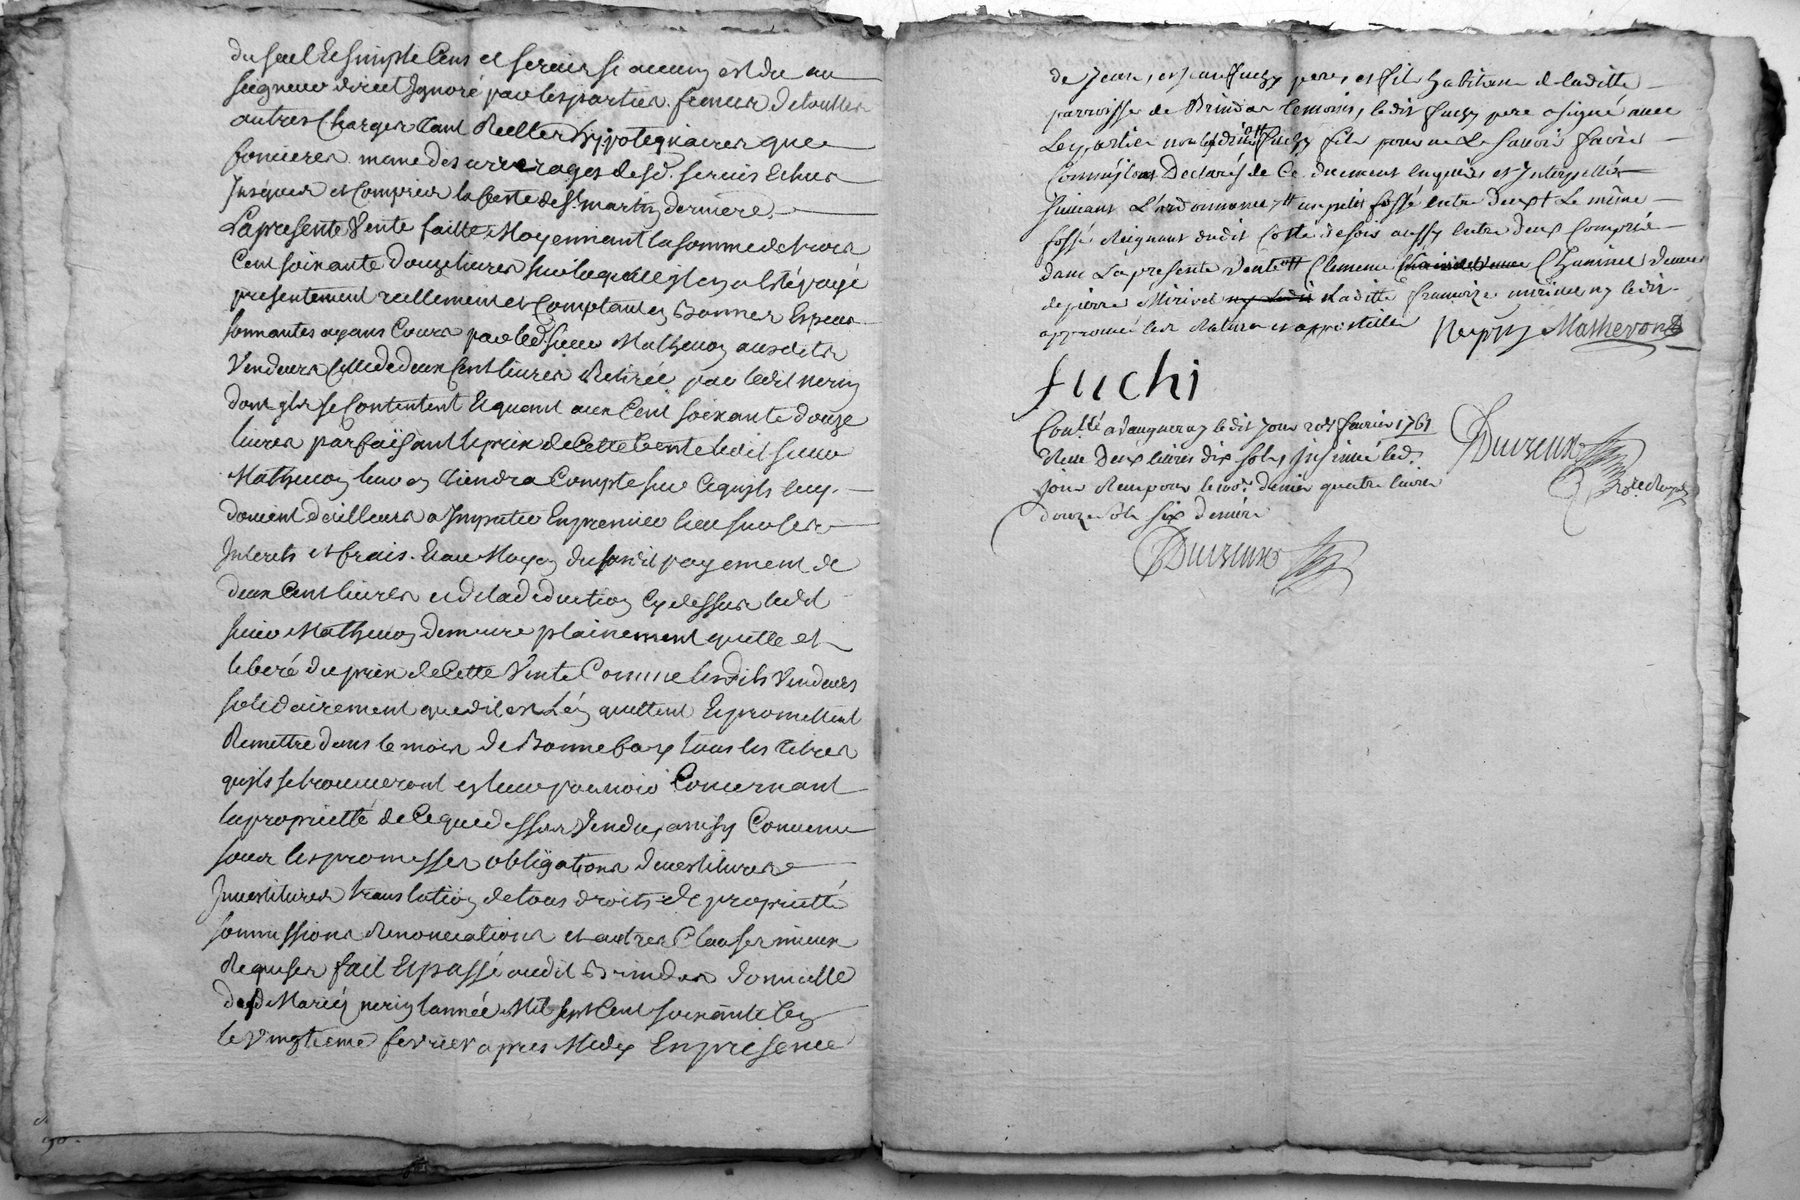 du seul et simple Cens et servis si aucun est du au
seigneur direct Ignoré par les parties. francs de touttes
autres Charges tant Reelles hypotequaires que
foncieres mame des arrerages desd. servis Echus
Jusques et Compries la feste de St martin derniere.
La presente Vente faitte Moyennant la somme de trois
Cent soixante douze livres sur laquelle il en a été payé
presentement reellement et Comptant en Bonnes Especes
sonnantes ayans Cours par led. sieur Mathevon auxdits
Vendeurs Celle de deux Cent livres Retirée par ledit nerin
dont ils se Contentent Et quant aux Cent soixante douze
livres parfaisant le prix de Cette Vente ledit sieur
Mathevon leur en tiendra Compte sur Ce quils luy
doivent d'ailleurs a Imputer En premier lieu sur les
Interets et frais. Et au Moyen du susdit payement de
deux Cent livres et de la deduction Cy dessus ledit
sieur Mathevon demeure plainement quitte et
liberé du prix de Cette Vente Comme lesdits Vendeurs
solidairement que dit est L'en quittent Et promettent
Remettre dans le mois de Bonne foy tous les titres
quils se trouveront en leur pouvoir Concernant
la proprietté de Ce que dessus Vendu, ainsy Convenu
sous les promesses obligations devestitures
Investitures translation de tous droits de proprietté
soumissions Renonciations et autres Clauses mieux
Requises fait Et passé audit Brindas domicille
desd Mariés nerin l'année Mil sept Cent soixante Un
le Vingtieme fevrier apres Midy En presence
de Jean, et jean fuchy pere, et fils habitans de laditte
parroisse de Brindas temoins, ledit fuchy pere a signé avec
Les parties non ledit fuchy fils pour ne Le savoir faire
Comme ils ont Declarés de Ce duement enquies et Interpellés
suivant L'ordonnance, # un petit fossé entre deux # Le même
fossé Reignant dudit Costé de soir aussy entre deux Comprie
dans La presente Vente # Clemence Chavinet Veuve
de pierre Mirivel Laditte francoize ny ledit
approuvé les Ratures et appostilles Mathevon
fuchi
Con.llé a Vaugneray ledit jour 20e fevrier 1761
Receu Deux livres dix sols, Insinué led.
jour Receu pour le denier quatre livres
douze sols six deniers